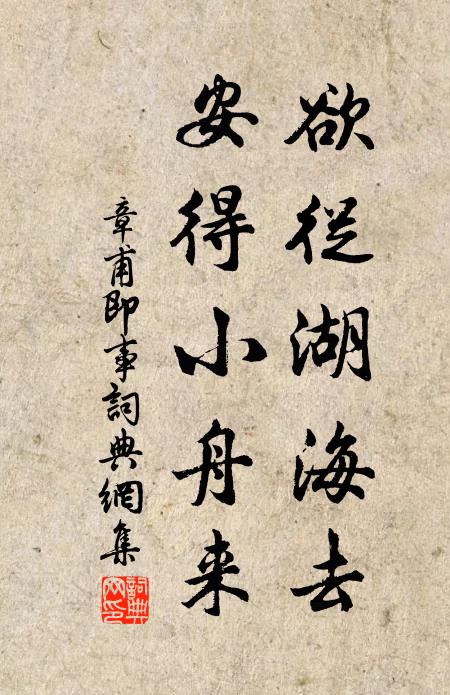 欲從湖海去
安得小舟来
章甫即事詞典網集
詞典網印